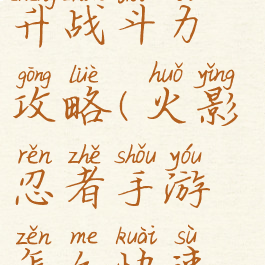 升战斗力
gōng lüè huǒ yǐng
攻略(火影
rěn zhě shǒu yóu
忍者手游
zěn me kuài sù
怎么快速